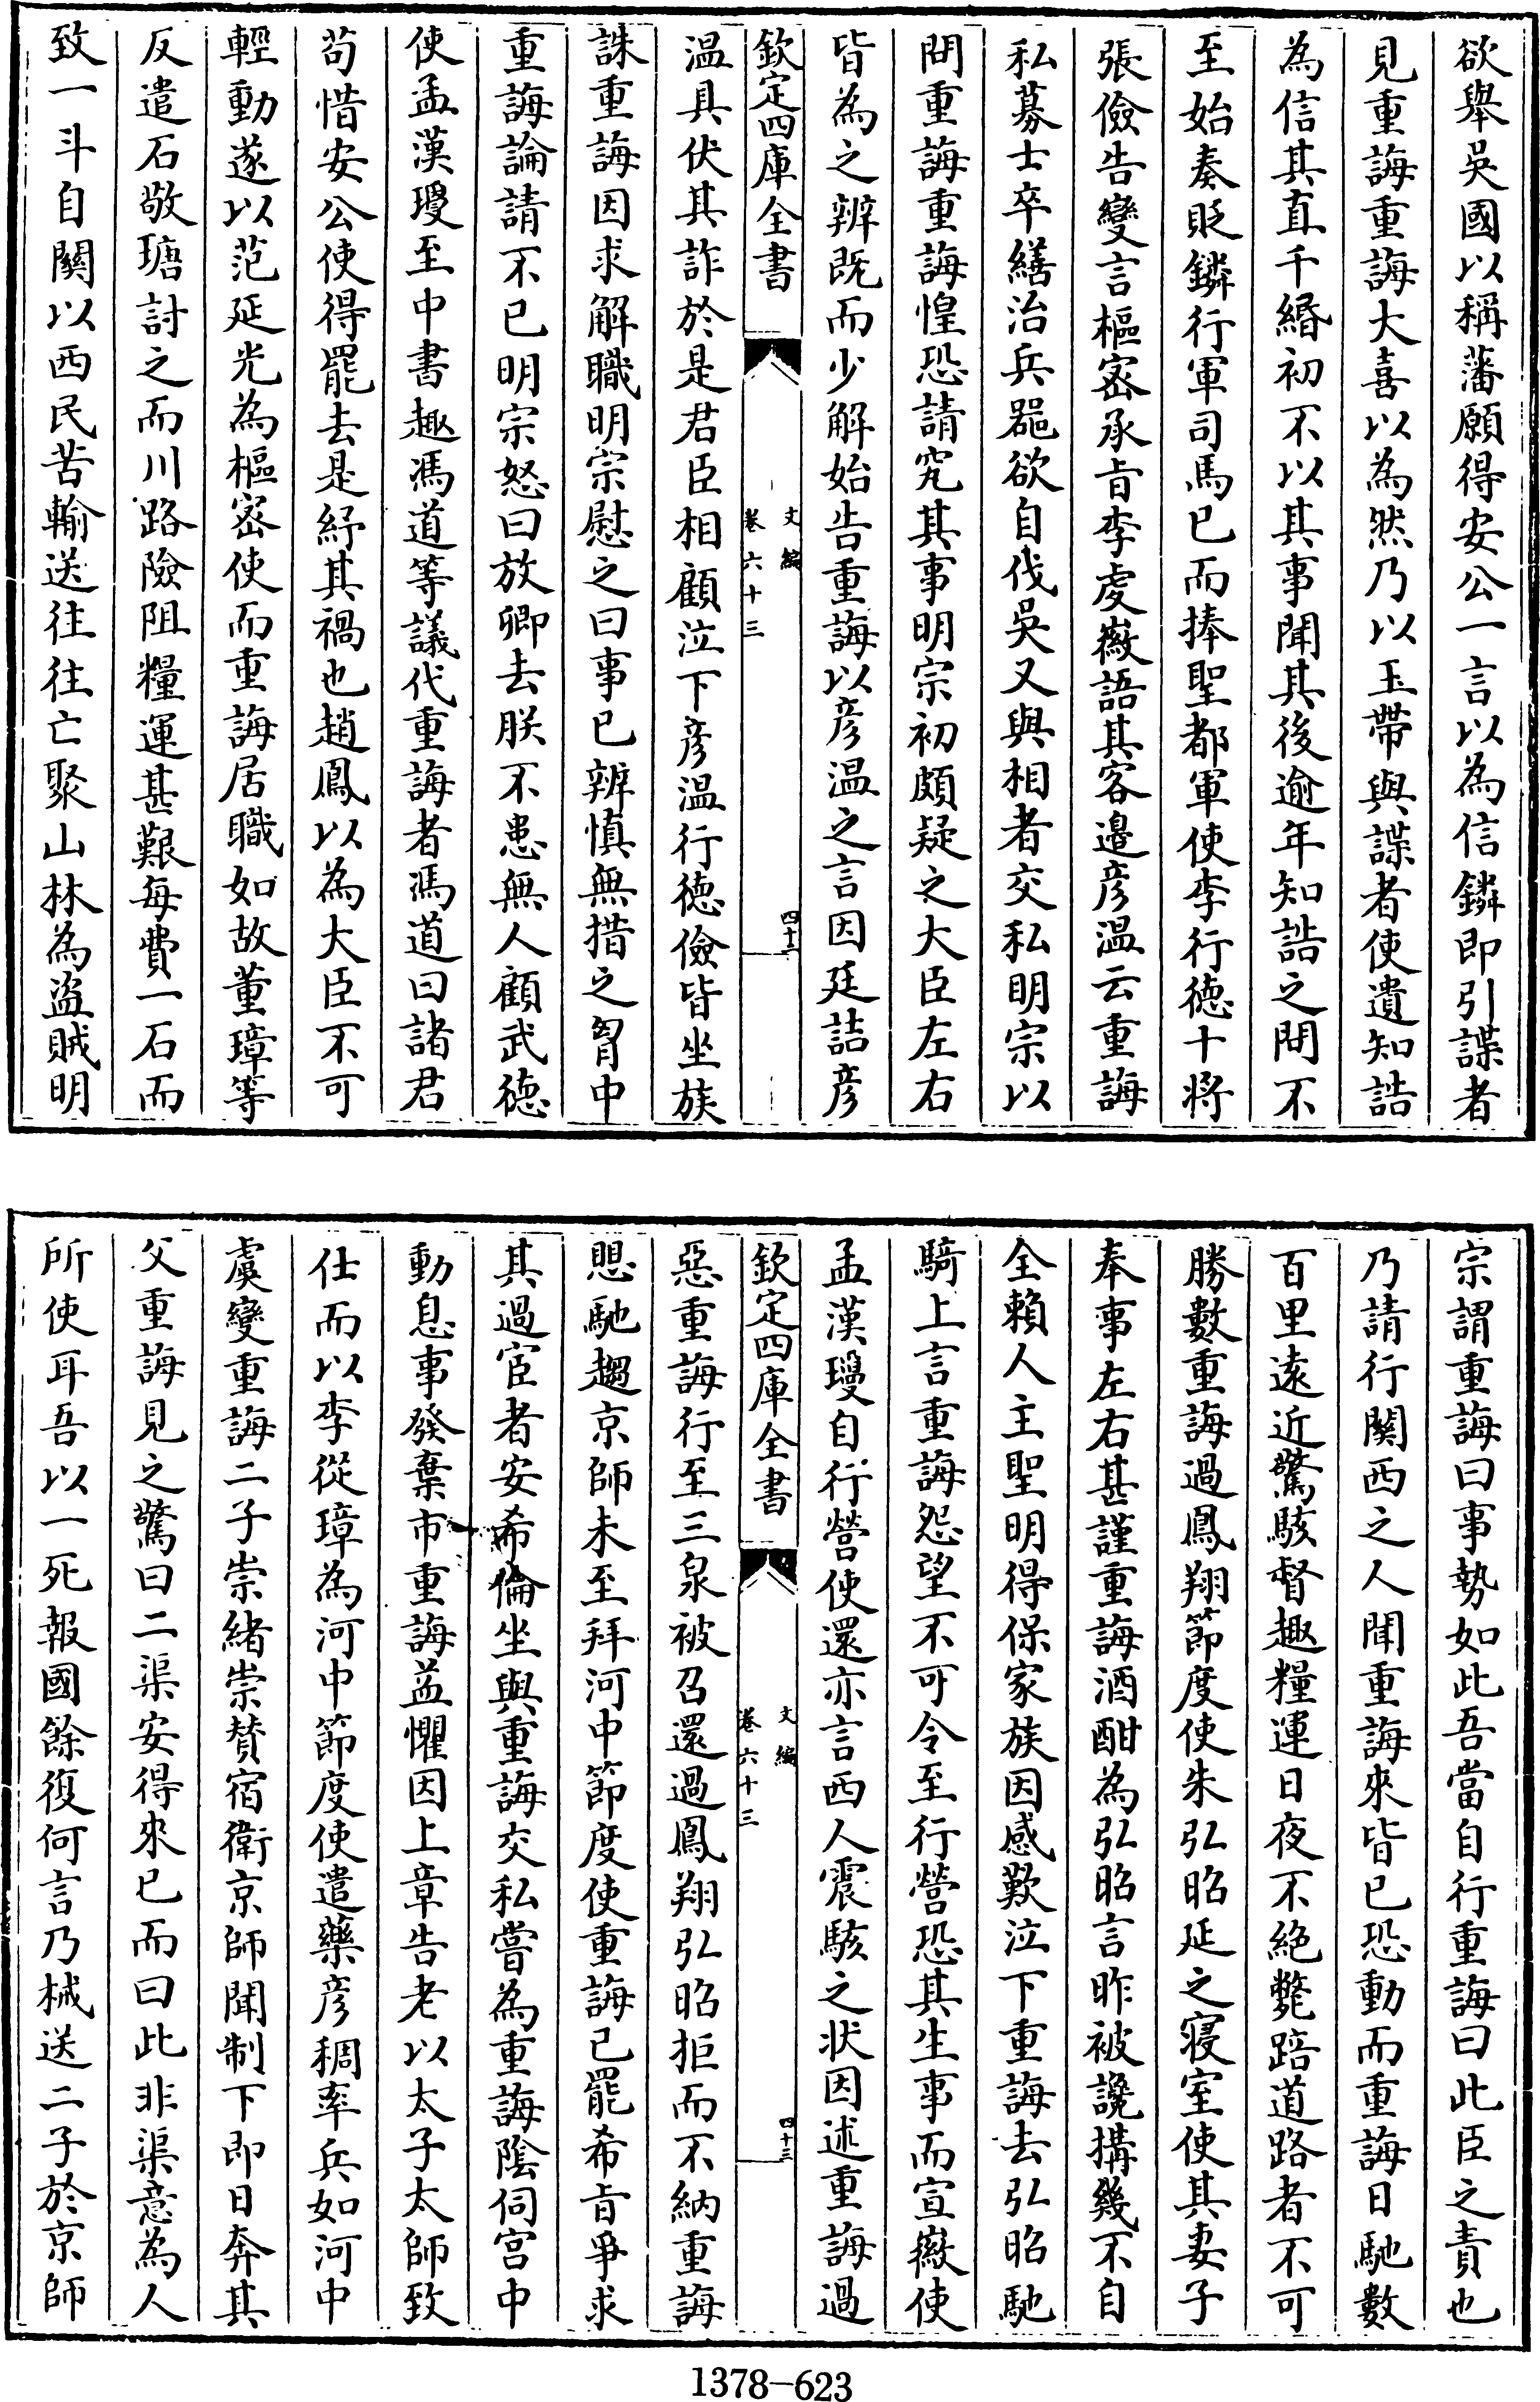 欲舉吳國以稱藩願得安公一言以為信鏻即引諜者
見重誨重誨大喜以為然乃以玉帶與諜者使遺知誥
為信其直千緡初不以其事聞其後逾年知誥之問不
至始奏貶鏻行軍司馬已而捧聖都軍使李行徳十將
張儉告變言樞密承旨李虔徽語其客邉彦温云重誨
私募士卒繕治兵噐欲自伐吳又與相者交私明宗以
問重誨重誨惶恐請究其事明宗初頗疑之大臣左右
皆為之辨既而少解始告重誨以彦温之言因廷詰彦
欽定四庫全書
文編
卷六十三
四十二
温具伏其詐於是君臣相顧泣下彦温行徳儉皆坐族
誅重誨因求解職明宗慰之曰事已辨慎無措之胷中
重誨論請不已明宗怒曰放卿去朕不患無人顧武徳
使孟漢瓊至中書趣馮道等議代重誨者馮道曰諸君
茍惜安公使得罷去是紓其禍也趙鳳以為大臣不可
輕動遂以范延光為樞密使而重誨居職如故董璋等
反遣石敬瑭討之而川路險阻糧運甚艱每費一石而
致一斗自關以西民苦輸送往往亡聚山林為盗賊明
宗謂重誨曰事勢如此吾當自行重誨曰此臣之責也
乃請行關西之人聞重誨來皆已恐動而重誨日馳數
百里逺近驚駭督趣糧運日夜不絶斃踣道路者不可
勝數重誨過鳳翔節度使朱弘昭延之寢室使其妻子
奉事左右甚謹重誨酒酣為弘昭言昨被讒搆幾不自
全賴人主聖明得保家族因感歎泣下重誨去弘昭馳
騎上言重誨怨望不可令至行營恐其生事而宣徽使
孟漢瓊自行營使還亦言西人震駭之狀因述重誨過
欽定四庫全書
文編
卷六十三
四十三
惡重誨行至三泉被召還過鳳翔弘昭拒而不納重誨
懼馳趨京師未至拜河中節度使重誨已罷希旨爭求
其過宦者安希倫坐與重誨交私嘗為重誨陰伺宮中
動息事發棄市重誨益懼因上章告老以太子太師致
仕而以李從璋為河中節度使遣藥彦稠率兵如河中
虞變重誨二子崇緒崇賛宿衛京師聞制下即日奔其
父重誨見之驚曰二渠安得來已而曰此非渠意為人
所使耳吾以一死報國餘復何言乃械送二子於京師
1378-623